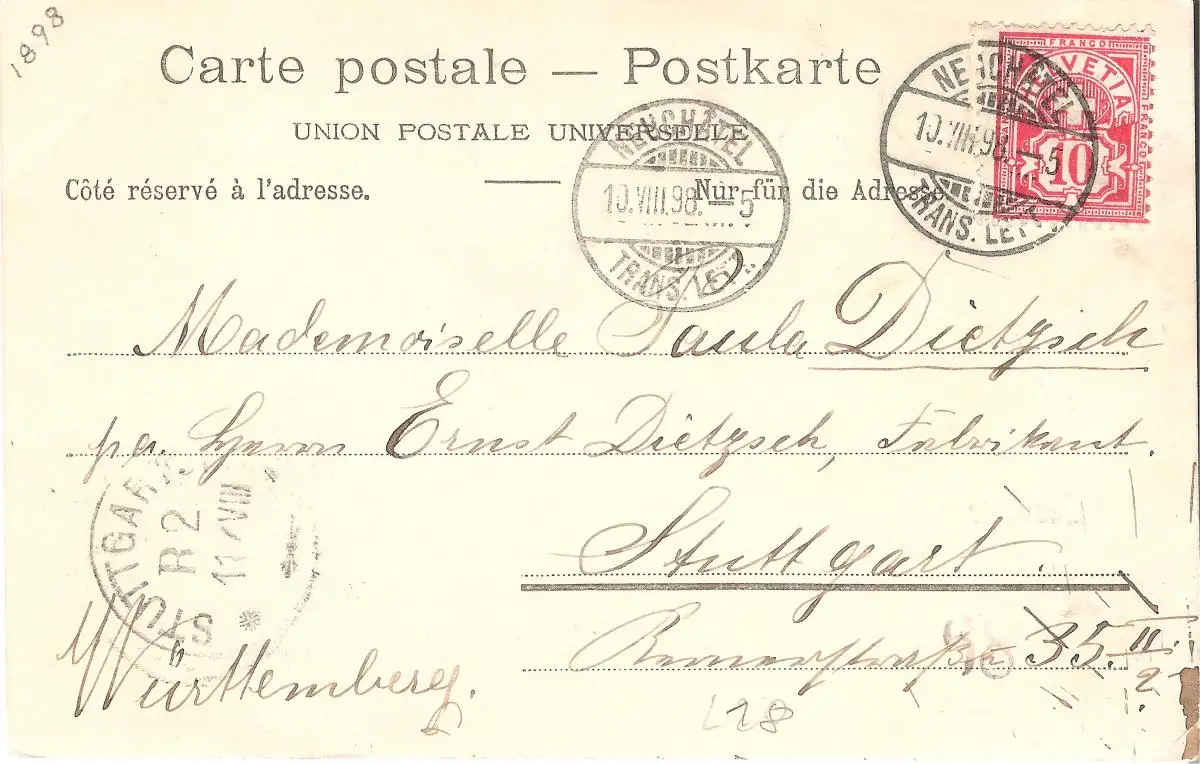 1898
Carte postale — Postkarte
UNION POSTALE UNIVERSELLE
Côté réservé à l'adresse. Nur für die Adresse
NEUCHÂTEL
10.VIII.98.–5
TRANS. LETT.
NEUCHÂTEL
10.VIII.98.–5
TRANS. LETT.
FRANCO
HELVETIA
FRANCO
10
Mademoiselle Paula Dietzsch
pa. Herrn Ernst Dietzsch, Fabrikant.
Stuttgart.
35. II.
2.
Württemberg.
STUTTGART
R 2
11 VIII
L28